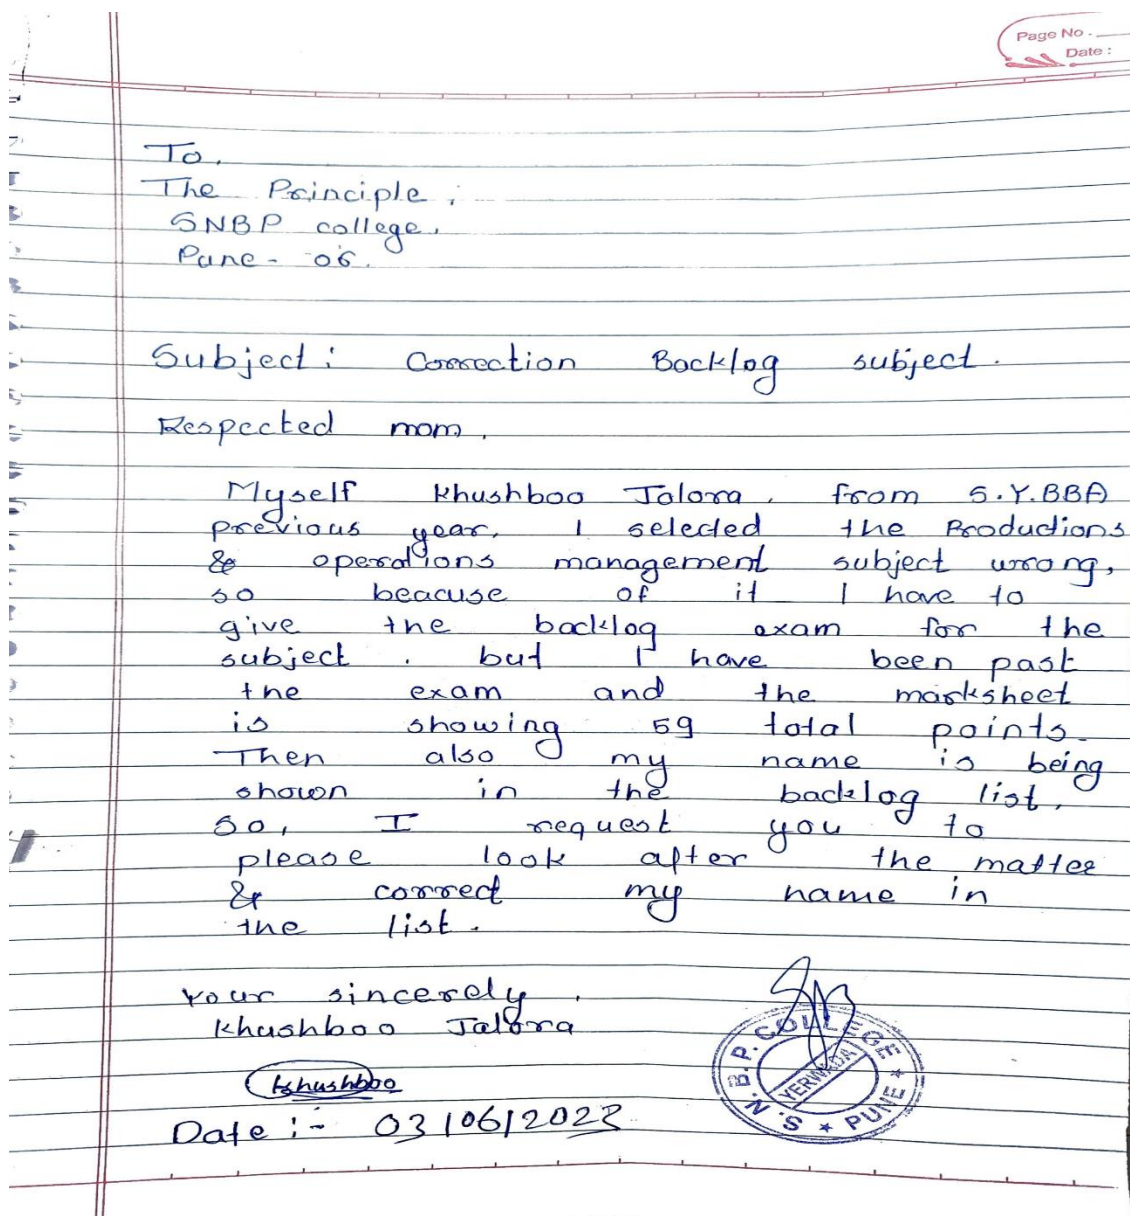 Page No.
Date :
To,
The Principle,
SNBP college,
Pune - 06.
Subject : Correction Backlog subject.
Respected mam,
Myself Khushboo Jalora, from S.Y.BBA
previous year, I selected the Productions
& operations management subject wrong,
so beacuse of it I have to
give the backlog exam for the
subject. but I have been past
the exam and the marksheet
is showing 59 total points.
Then also my name is being
shown in the backlog list,
So, I request you to
please look after the matter
& correct my name in
the list.
Your sincerely,
Khushboo Jalora
Khushboo
S.N.B.P. COLLEGE * PUNE *
YERWADA
Date :- 03/06/2023